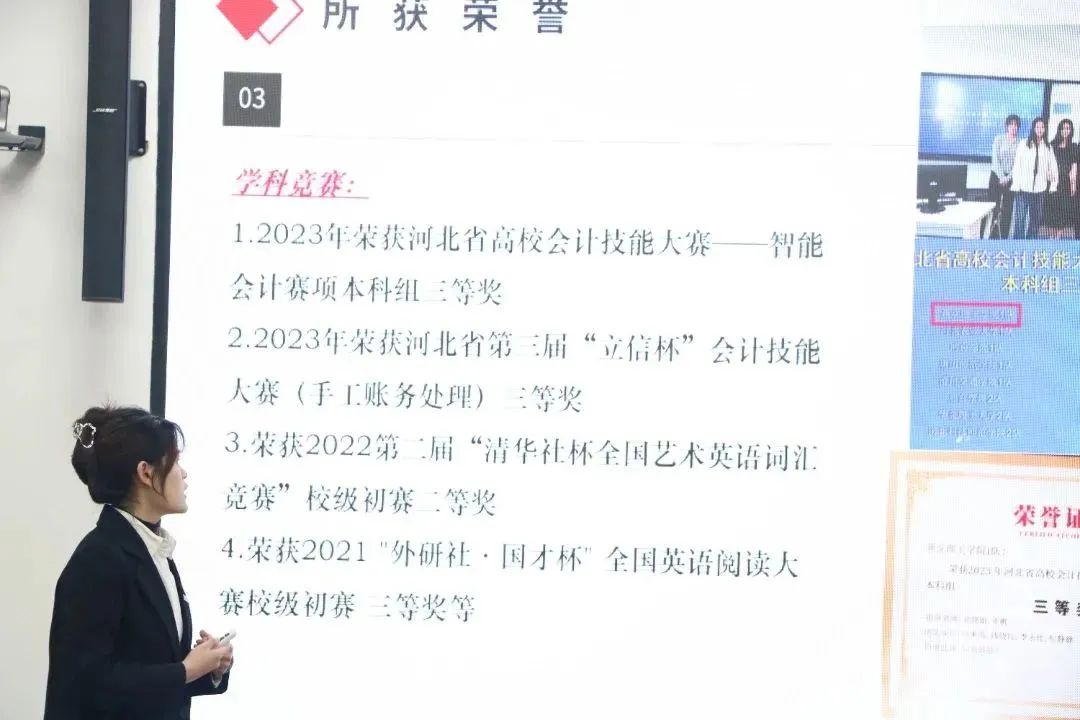 所获荣誉
03
学科竞赛：
1.2023年荣获河北省高校会计技能大赛——智能
会计赛项本科组三等奖
2.2023年荣获河北省第三届“立信杯”会计技能
大赛（手工账务处理）三等奖
3.荣获2022第二届“清华社杯全国艺术英语词汇
竞赛”校级初赛二等奖
4.荣获2021 "外研社·国才杯" 全国英语阅读大
赛校级初赛 三等奖等
北省高校会计技能
本科组三
荣誉证
荣获2023年河北省高校会计
本科组
三等